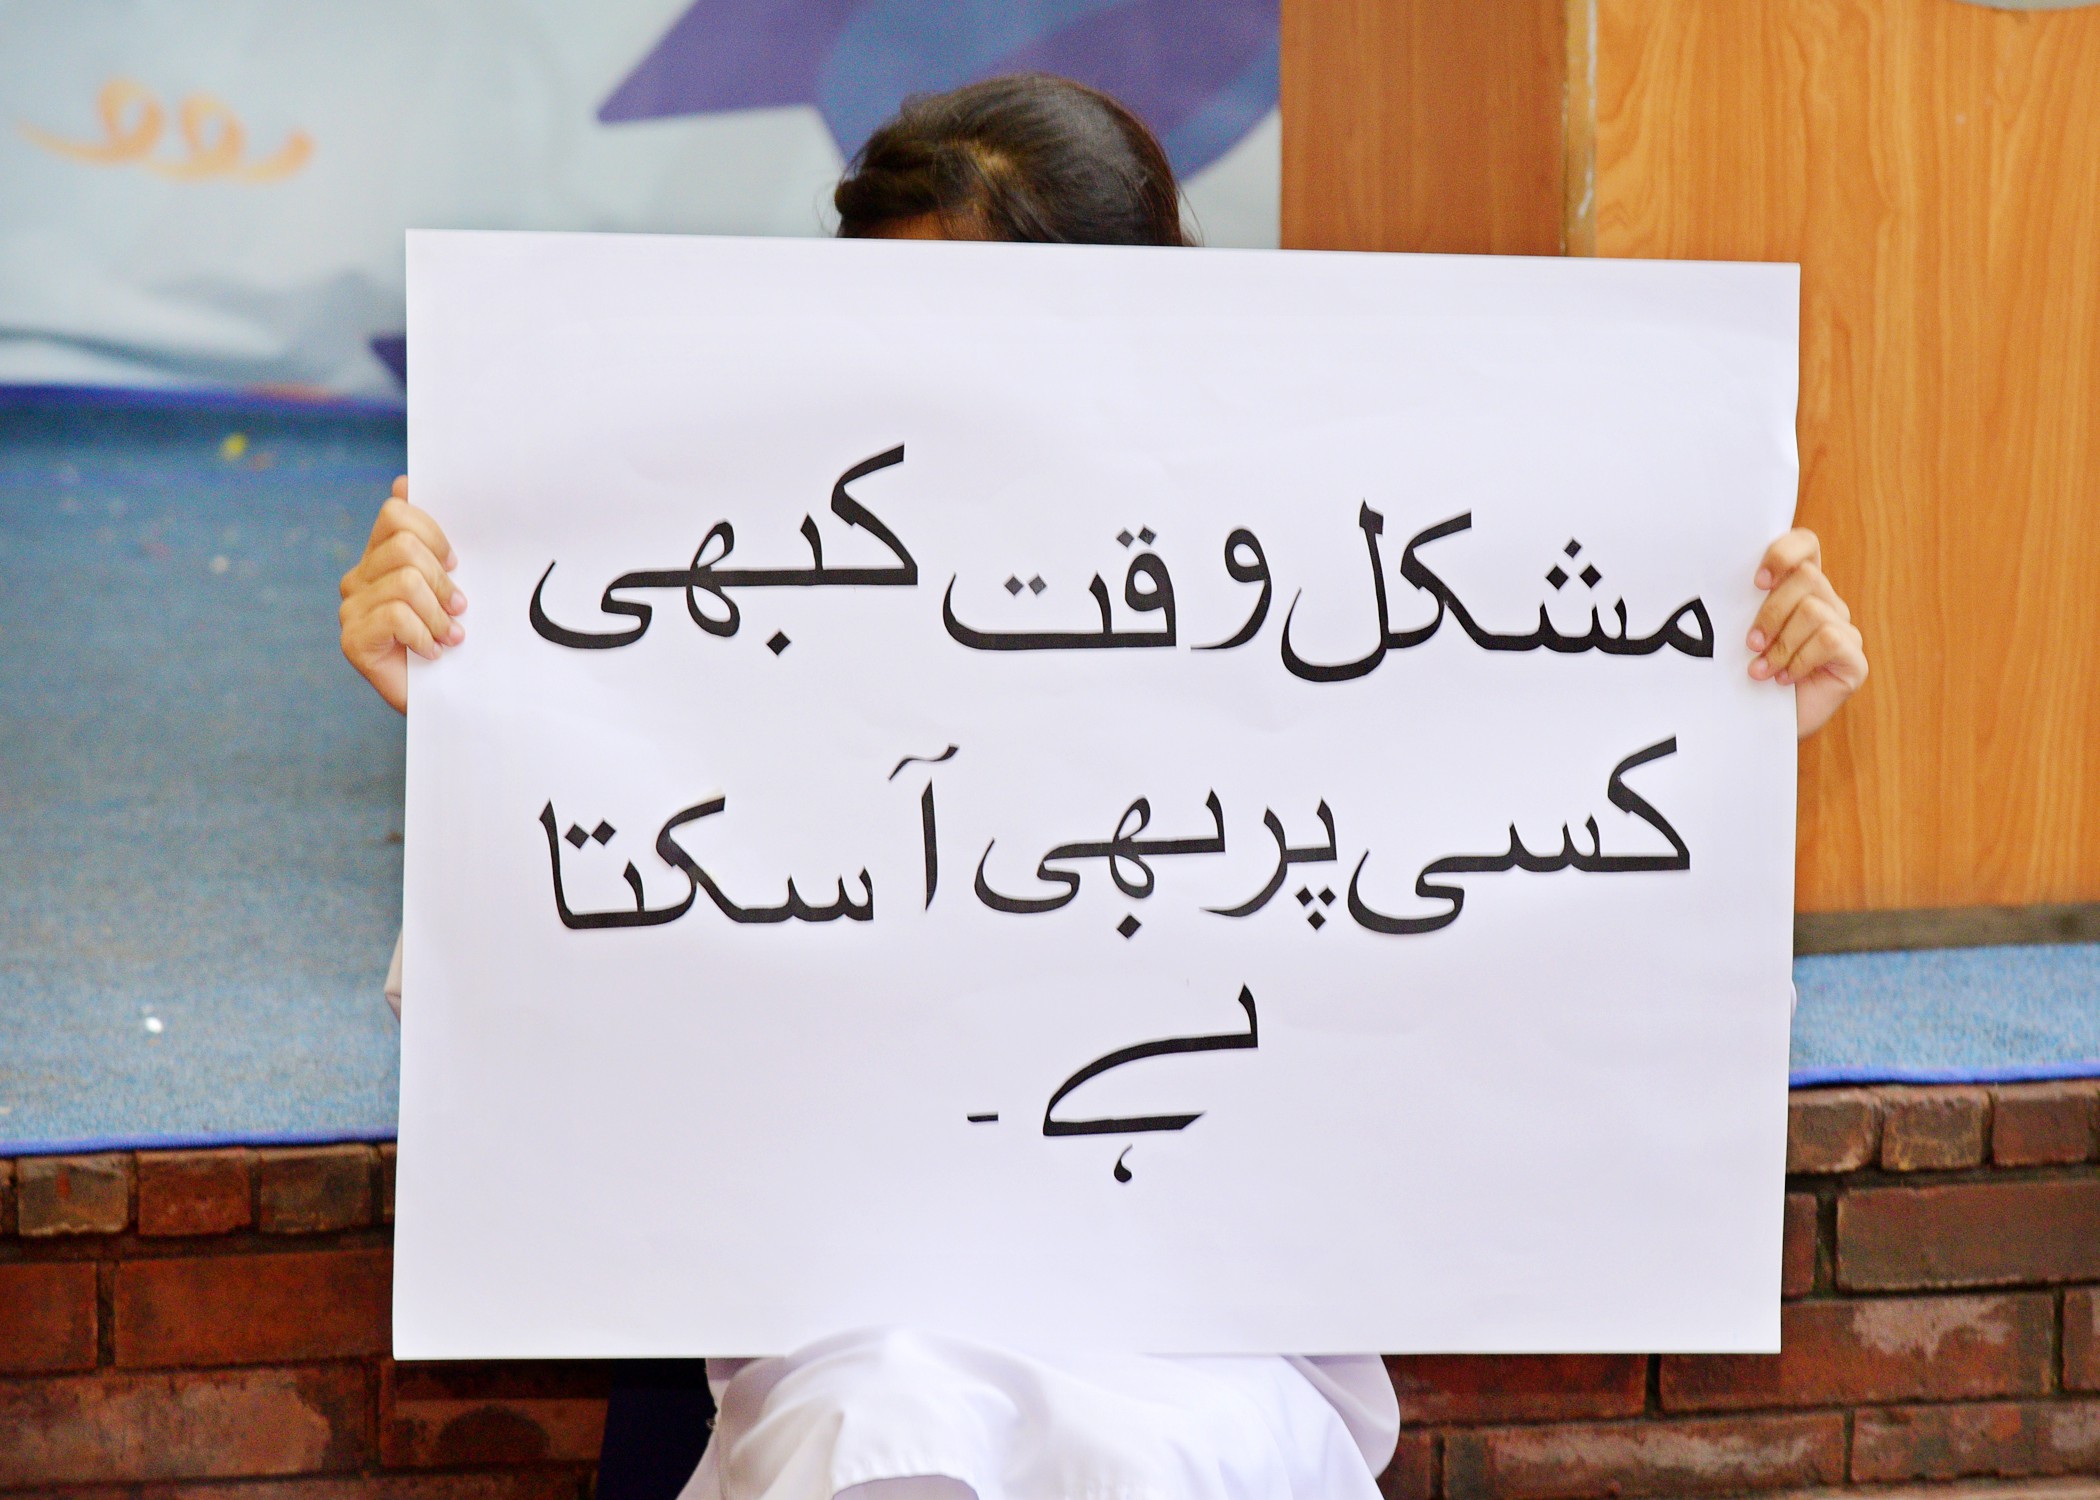 مشکل وقت کبھی
کسی پر بھی آ سکتا
ہے ۔